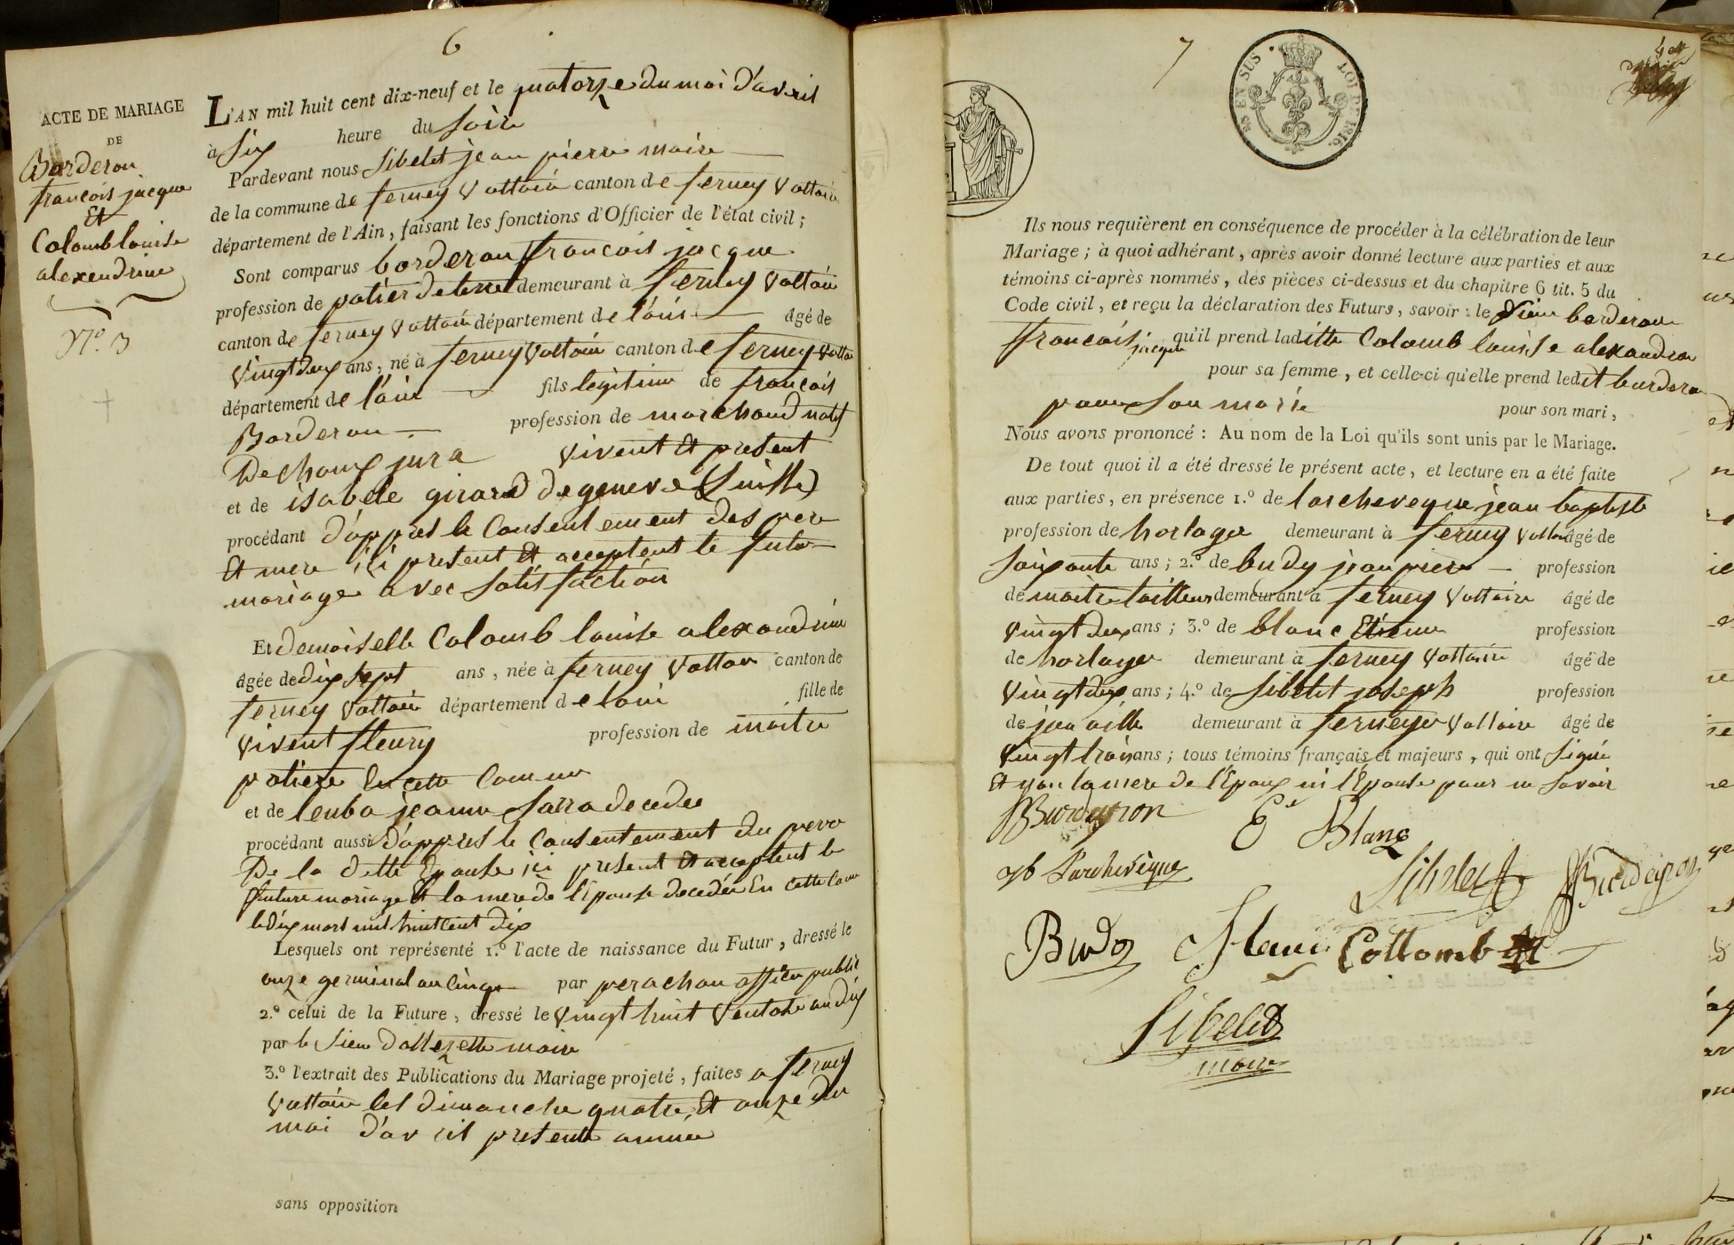 6
ACTE DE MARIAGE
DE
Borderon
francois jacque
Et
Colomb louise
alexendrine
N.º 3
L'AN mil huit cent dix-neuf et le quatorze du moi d'avril
à Six heure du Soir
Pardevant nous Sibelet jean pierre maire
de la commune de ferney Voltair canton de ferney Voltair
département de l'Ain, faisant les fonctions d'Officier de l'état civil;
Sont comparus borderon francois jacque
profession de potier de terre demeurant à ferney Voltair
canton de ferney Voltair département de l'ain âgé de
Vingt deux ans, né à ferney Voltair canton de ferney Voltair
département de l'ain fils legitime de francois
Borderon profession de marchand natif
De jura vivent Et present
et de isabele girard de geneve (Suisse)
procédant d'appres le Consentement des pere
Et mere ici present Et acceptent le futur
mariage avec Satisfaction
Et demoiselle Colomb louise alexandrine
âgée de dix sept ans, née à ferney Voltair canton de
ferney Voltair département de lain fille de
vivent fleury profession de maitre
potiere En cette Commune
et de jeanne Sarra decedee
procédant aussi d'appres le Consentement du pere
De la ditte Epouse ici present Et acceptent le
future mariage Et la mere de l'Epouse decedée En cette Com
le dix mars mil huit cent dix
Lesquels ont représenté 1.º l'acte de naissance du Futur, dressé le
onze germinal an cinqe par perachon officier public
2.º celui de la Future, dressé le vingt huit Ventose an dix
par le Sieur maire
3.º l'extrait des Publications du Mariage projeté, faites a ferney
Voltair les dimanche quatre, Et onze du
moi d'avril presente année
sans opposition
7
EN SUS
LOI DE 1816.
Ils nous requièrent en conséquence de procéder à la célébration de leur
Mariage; à quoi adhérant, après avoir donné lecture aux parties et aux
témoins ci-après nommés, des pièces ci-dessus et du chapitre 6 tit. 5 du
Code civil, et reçu la déclaration des Futurs, savoir: le Sieur borderon
francois jacque qu'il prend laditte Colomb louise alexandrine
pour sa femme, et celle-ci qu'elle prend ledit borderon
pour Son marie pour son mari,
Nous avons prononcé: Au nom de la Loi qu'ils sont unis par le Mariage.
De tout quoi il a été dressé le présent acte, et lecture en a été faite
aux parties, en présence 1.º de larcheveque jean baptiste
profession de horloger demeurant à ferney Voltair âgé de
Soixante ans; 2.º de budy jean pierre profession
de maitre tailleur demeurant à ferney Voltaire âgé de
Vingt deux ans; 3.º de blanc Etienne profession
de horloger demeurant à ferney Voltaire âgé de
Vingt deux ans; 4.º de Sibelet joseph profession
de demeurant à ferneye Voltaire âgé de
Vingt trois ans; tous témoins français et majeurs, qui ont Signé
Et non la mere de l'Epoux ni l'Epouse pour ne Savoir
Borderon
Ee Blanc
jb Larchevêque
Sibelet
Borderon
Budy
Collomb
Sibelet
maire